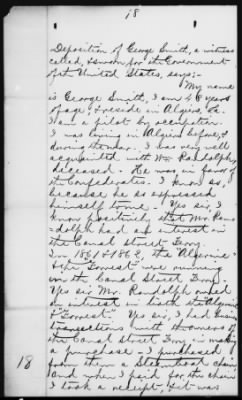 18
Deposition of George Smith, a witness
called, & sworn for the Government
of the United States, says;-
My name
is George Smith, I am 48 years
of age, & reside in Algiers, La.
I am a pilot by occupation.
I was living in Algiers before, &
during the war. I was very well
acquainted with Wm Randolph,
deceased. He was in favor of
the Confederates. I know so,
because he so expressed
himself to me. Yes sir, I
know positively that Mr. Ran
dolph had an interest in
the Canal Street Ferry.
In 1861 & 1862, the "Algerine"
& the "Forrest" were running
on the Canal Street Ferry.
Yes sir Mr. Randolph owned
an interest in both the Algerine
& "Forrest." Yes sir, I had
transactions with the owners of
the Canal Street Ferry in making
a purchase - I purchased
from them a Steamboat chain
and when I paid for the chain
I took a receipt, it was
18